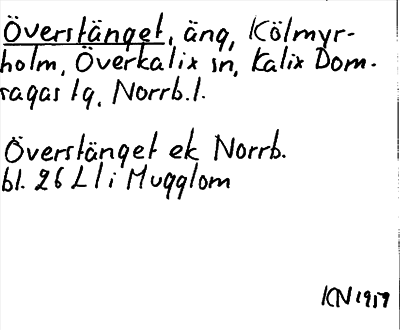 Överstänget, äng, Kölmyr-
holm, Överkalix sn, Kalix Dom-
sagas tg, Norrb. l.
Överstänget ek Norrb.
bl. 26 Ll i Mugglom
KN 1959